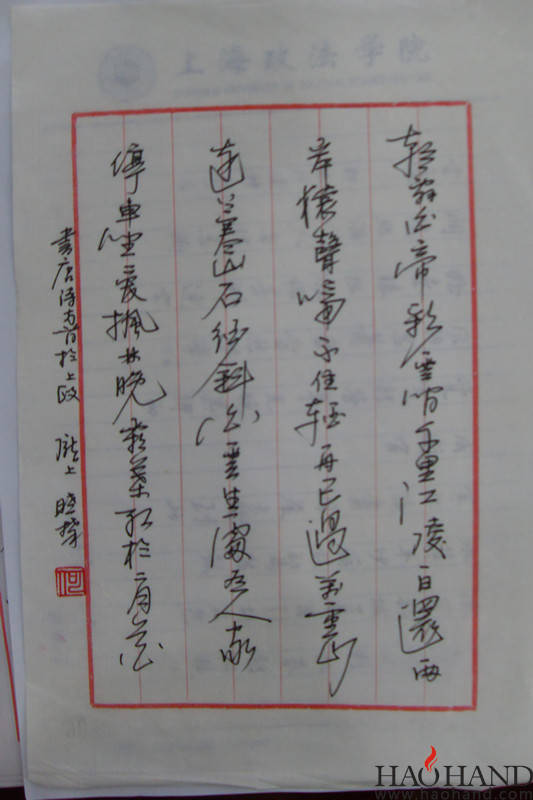 上海政法学院
朝辞白帝彩雲间千里江陵一日還两
岸猿聲啼不住轻舟已過万重山
远上寒山石径斜白雲生處有人家
停車坐爱楓林晚霜葉红於二月花
書唐诗two首於上政 陇上
HAOHAND
www.haohand.com